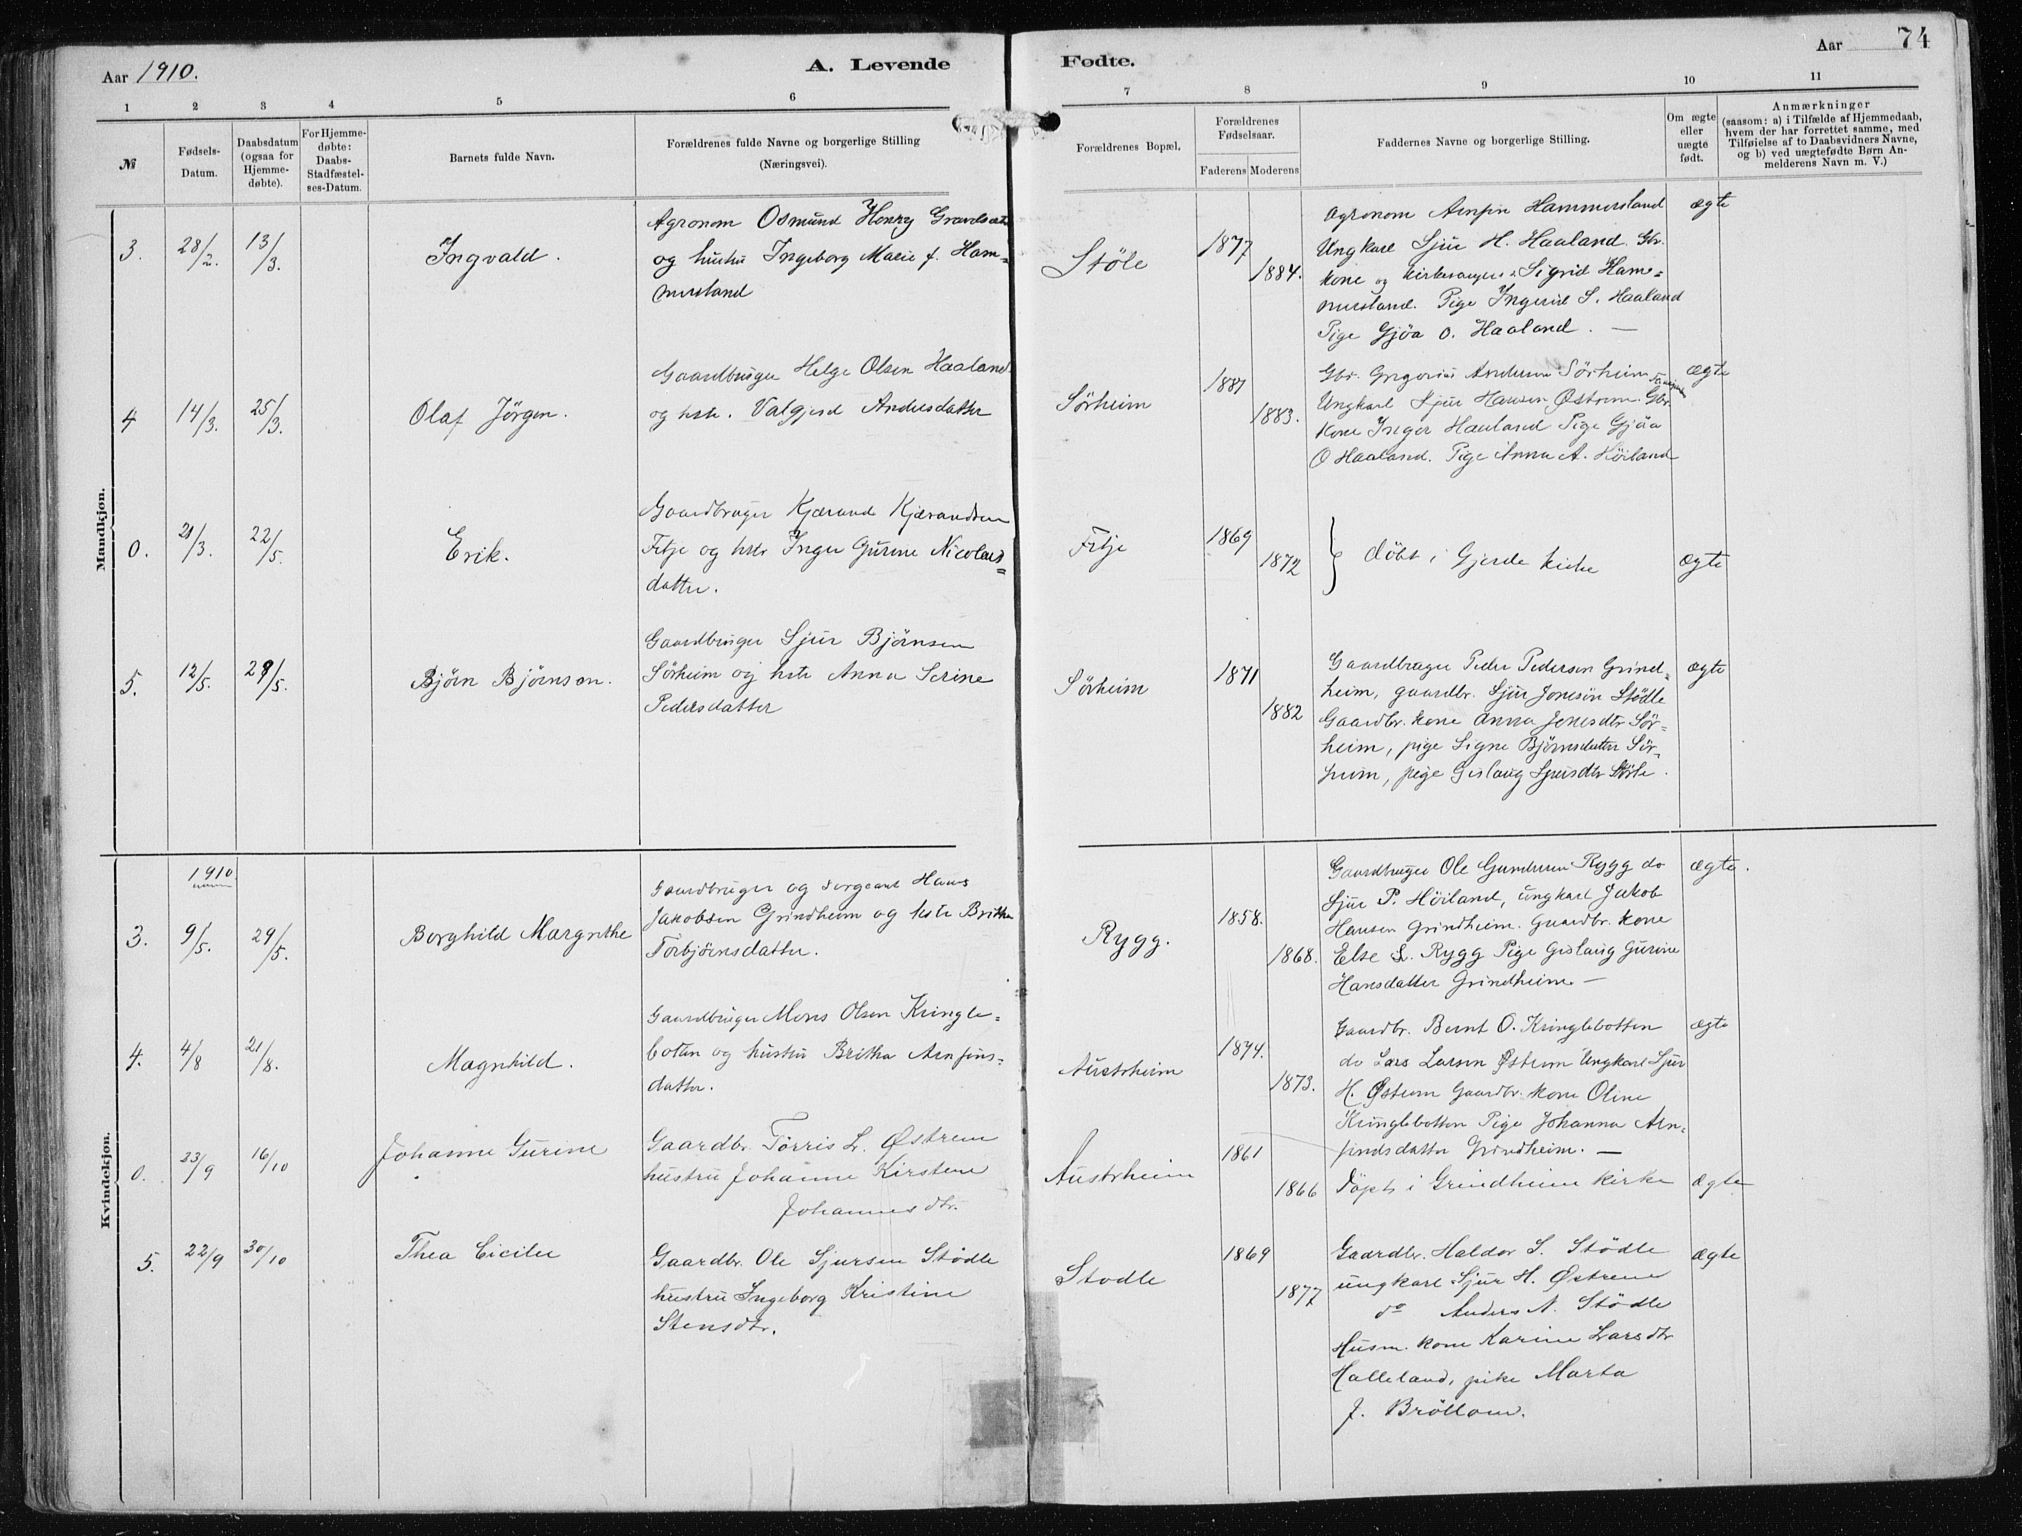 Aar 1910.
A. Levende
Fødte.
Aar 74
1 2 3 4 5 6 7 8 9 10 11
№
Fødsels-
Datum.
Daabsdatum
(ogsaa for
Hjemme-
døbte).
For Hjemme-
døbte:
Daabs-
Stadfæstel-
ses-Datum.
Barnets fulde Navn.
Forældrenes fulde Navne og borgerlige Stilling
(Næringsvei).
Forældrenes Bopæl.
Forældrenes
Fødselsaar.
Faderens Moderens
Faddernes Navne og borgerlige Stilling.
Om ægte
eller
uægte
født.
Anmærkninger
(saasom: a) i Tilfælde af Hjemmedaab,
hvem der har forrettet samme, med
Tilføielse af to Daabsvidners Navne,
og b) ved uægtefødte Børn An-
melderens Navn m. V.)
Mandkjøn.
3. 28/2. 13/3. Ingvald.
Agronom Osmund Henry
og hustru Ingeborg Marie f. Ham=
mersland
Støle
1877
1884.
Agronom Arnfin Hammersland
Ungkarl Sjur H. Haaland. Gbr.
kone og kirkesangers Sigrid Ham=
mersland. Pige Ingerid S. Haaland
Pige Gjøa O. Haaland. —
ægte
4 14/3. 25/3. Olaf Jörgen.
Gaardbruger Helge Olsen Haaland
og hstr. Valgjerd Andersdatter
Sørheim
1881
1883.
Gbr. Gregorius Andersen Sørheim
Ungkarl Sjur Hansen Østrem. Gbr.
Kone Inger Haaland Pige Gjøa
O Haaland. Pige Anna A. Høiland
ægte
0. 21/3. 22/5. Erik.
Gaardbruger Kjærand Kjærandsen
Fitje og hstr Inger Gurine Nicolais=
datter.
Fitje
1869
1872
døbt i Gjerde kirke
ægte
5. 12/5. 29/5. Bjørn Bjørnsen.
Gaardbruger Sjur Bjørnsen
Sørheim og hstr Anna Serine
Pedersdatter
Sørheim
1871
1882
Gaardbruger Peder Pedersen Grind=
heim, gaardbr. Sjur Jonesøn Stødle
Gaardbr. kone Anna Jonesdtr Sør=
heim, pige Signe Bjørnsdatter Sør=
heim, pige Gislaug Sjursdtr Støle.
ægte
Kvindekjøn.
1910
3. 9/5. 29/5. Borghild Margrethe
Gaardbruger og sergeant Hans
Jakobsen Grindheim og hstr Britha
Torbjørnsdatter.
Rygg.
1858.
1868.
Gaardbruger Ole Gundersen Rygg do
Sjur P. Høiland, ungkarl Jakob
Hansen Grindheim. Gaardbr. kone
Else L. Rygg Pige Gislaug Gurine
Hansdatter Grindheim. —
ægte.
4. 4/8 21/8. Magnhild.
Gaardbruger Mons Olsen Kringle=
botten og hustru Britha Arnfins=
datter.
Austrheim
1874.
1873.
Gaardbr. Bernt O. Kringlebotten
do Lars Larsen Østrem Ungkarl Sjur
H. Østrem Gaardbr. kone Oline
Kringlebotten Pige Johanna Arn=
finsdatter Grindheim. —
ægte
0. 23/9 16/10 Johanne Gurine
Gaardbr. Tørris L. Østrem
hustru Johanne Kirstene
Johannesdtr.
Austrheim
1861
1866
Døpt i Grindheim kirke
ægte
5. 22/9 30/10 Thea Cicilie
Gaardbr. Ole Sjursen Stødle
hustru Ingeborg Kristine
Stensdtr.
Stodle
1869
1877
Gaardbr. Haldor S. Stødle
ungkarl Sjur H. Østrem
do Anders N. Stødle
Husm. kone Karine Larsdtr
Halleland, pike Marta
J. Bröllom.
ægte